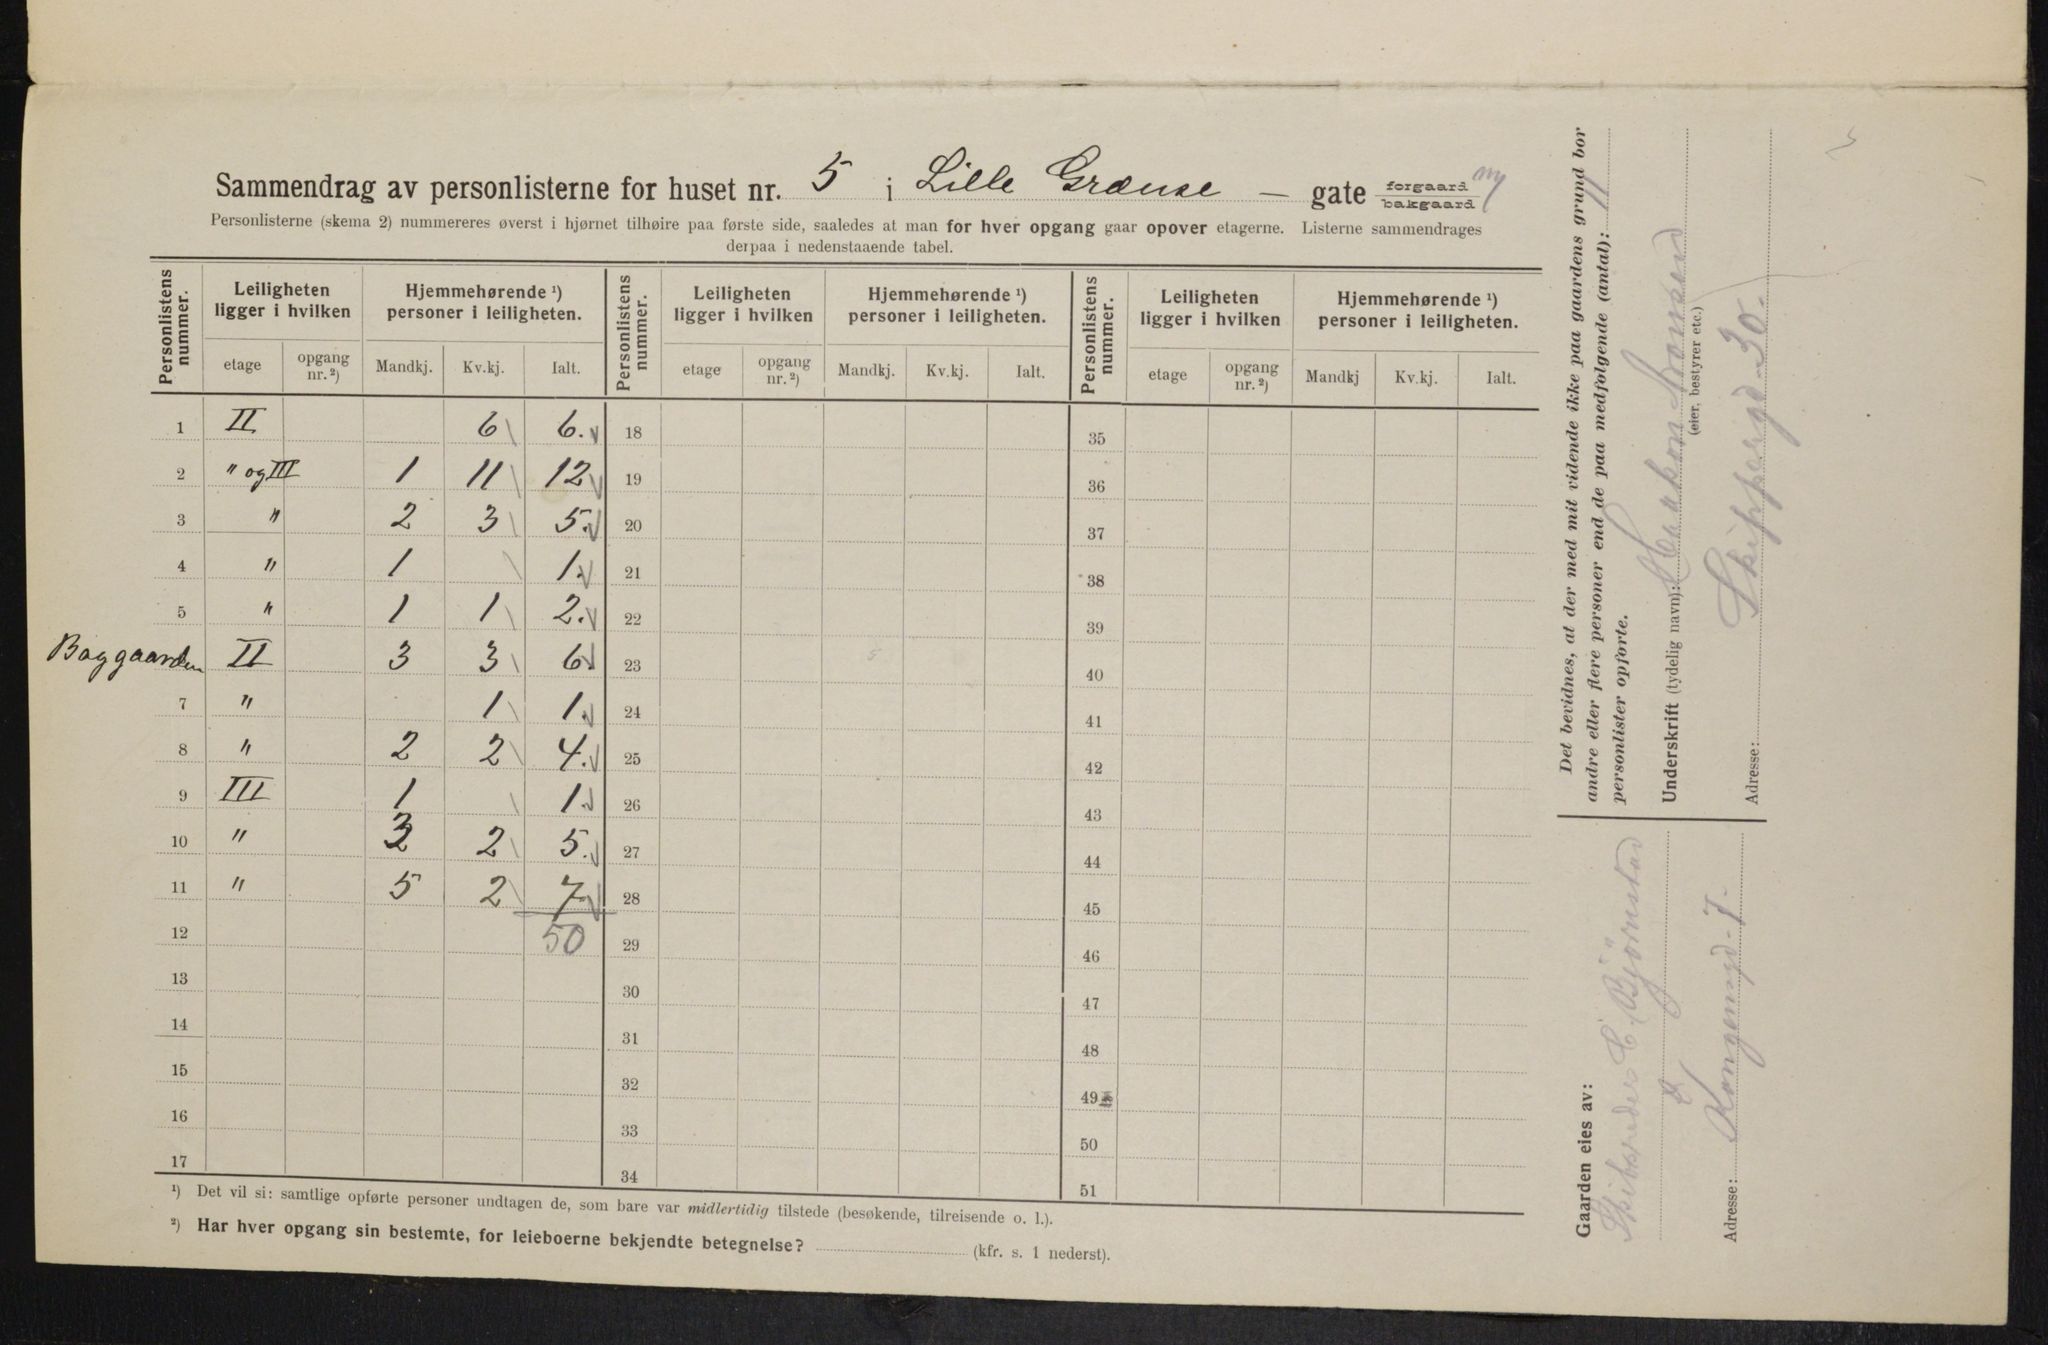 Sammendrag av personlisterne for huset nr. 5 i Lille Grænse — gate forgaard
bakgaard
Personlisterne (skema 2) nummereres øverst i hjørnet tilhøire paa første side, saaledes at man for hver opgang gaar opover etagerne. Listerne sammendrages
derpaa i nedenstaaende tabel.
Personlistens nummer. Leiligheten ligger i hvilken Hjemmehørende ¹) personer i leiligheten. Personlistens nummer. Leiligheten ligger i hvilken Hjemmehørende ¹) personer i leiligheten. Personlistens nummer. Leiligheten ligger i hvilken Hjemmehørende ¹) personer i leiligheten.
etage opgang nr. ²) Mandkj. Kv.kj. Ialt. etage opgang nr. ²) Mandkj. Kv.kj. Ialt. etage opgang nr. ²) Mandkj Kv.kj. Ialt.
1 II 6 6. 18 35
2 " og III 1 11 12 19 36
3 " 2 3 5. 20 37
4 " 1 1. 21 38
5 " 1 1 2. 22 39
Baggaarden II 3 3 6 23 40
7 " 1 1. 24 41
8 " 2 2 4. 25 42
9 III 1 1. 26 43
10 " 3 2 5. 27 44
11 " 5 2 7. 28 45
12 50 29 46
13 30 47
14 31 48
15 32 49
16 33 50
17 34 51
¹) Det vil si: samtlige opførte personer undtagen de, som bare var midlertidig tilstede (besøkende, tilreisende o. l.).
²) Har hver opgang sin bestemte, for leieboerne bekjendte betegnelse? (kfr. s. 1 nederst).
Det bevidnes, at der med mit vidende ikke paa gaardens grund bor
andre eller flere personer end de paa medfølgende (antal): 11
personlister opførte.
Underskrift (tydelig navn): Haakon
(eier, bestyrer etc.)
Adresse: Skippergd. 30.
Gaarden eies av:
Skibsreder C. Bjørnstad
Adresse: Kongensgd. 7.